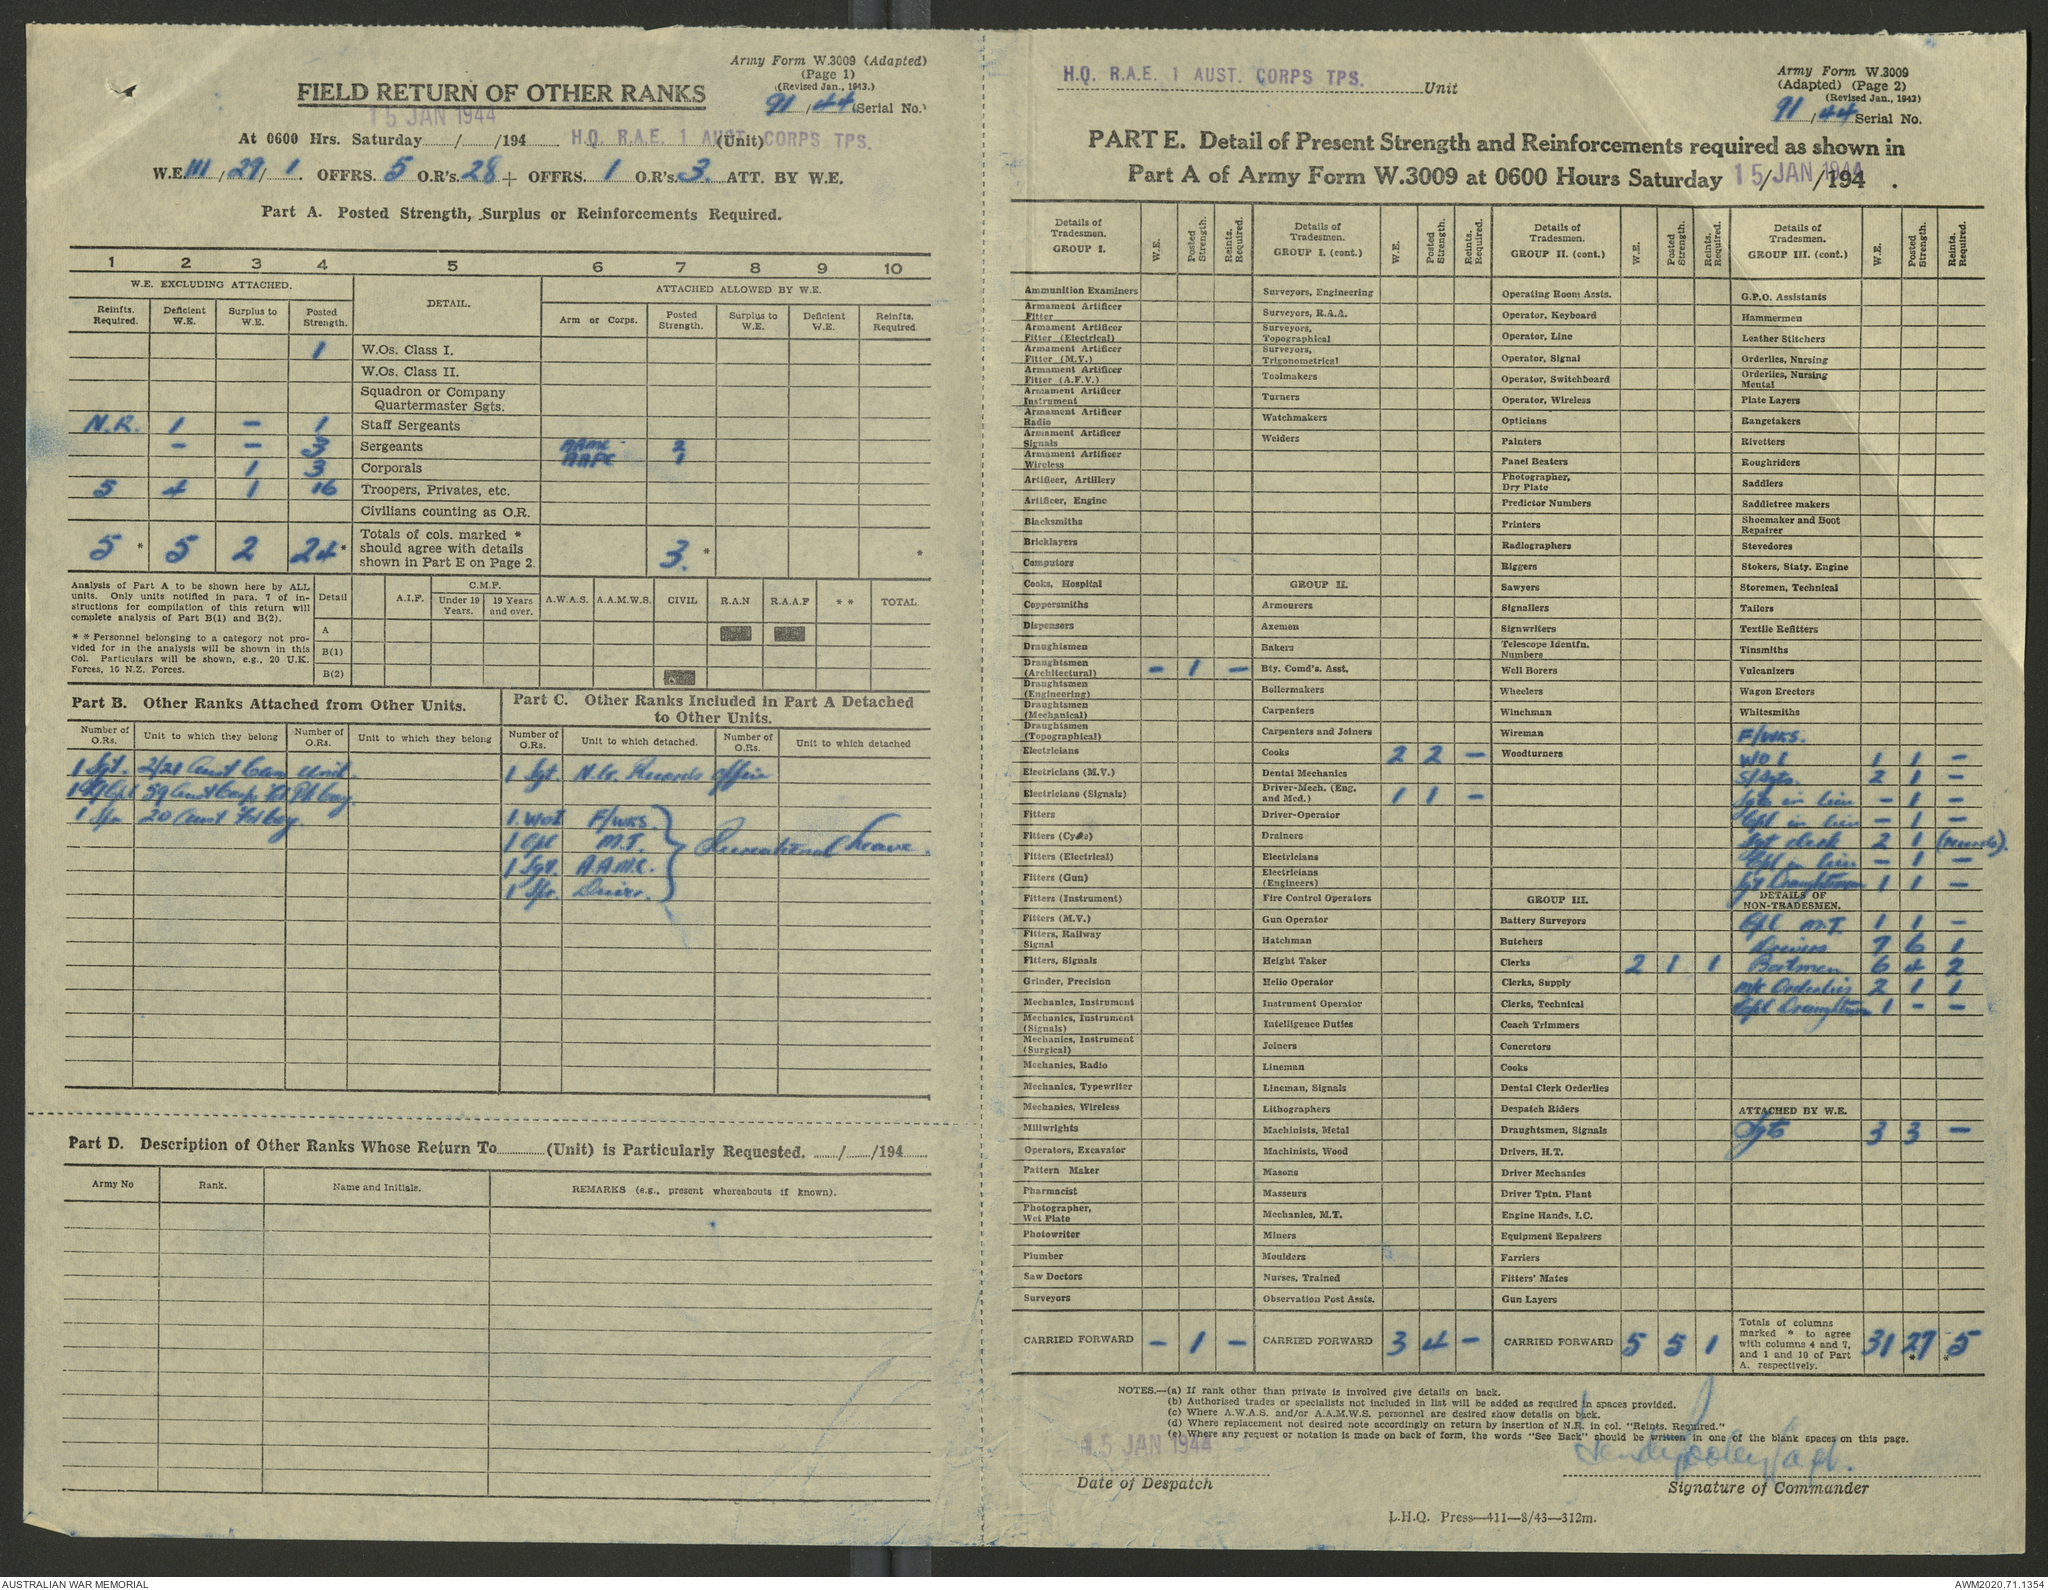 Army Form W.3009 (Adapted)
(Page 1)
(Revised Jan., 1943.)
FIELD RETURN OF OTHER RANKS
91/44 (Serial No.)
15 JAN 1944
At 0600 Hrs. Saturday / /194 H.Q. R.A.E. 1 AUST. CORPS TPS. (Unit)
W.E. III/29/1. OFFRS. 5 O.R's. 28 + OFFRS. 1 O.R's. 3. ATT. BY W.E.
Part A. Posted Strength, Surplus or Reinforcements Required.
1 2 3 4 5 6 7 8 9 10
W.E. EXCLUDING ATTACHED. DETAIL. ATTACHED ALLOWED BY W.E.
Reinfts. Required. Deficient W.E. Surplus to W.E. Posted Strength. Arm or Corps. Posted Strength. Surplus to W.E. Deficient W.E. Reinfts. Required.
1 W.Os. Class I.
W.Os. Class II.
Squadron or Company
Quartermaster Sgts.
N.R. 1 - 1 Staff Sergeants
- - 3 Sergeants AAMC 2
1 3 Corporals AAPC 1
5 4 1 16 Troopers, Privates, etc.
Civilians counting as O.R.
5 * 5 2 24 * Totals of cols. marked * should agree with details shown in Part E on Page 2. 3. * *
Analysis of Part A to be shown here by ALL units. Only units notified in para. 7 of instructions for compilation of this return will complete analysis of Part B(1) and B(2).
* * Personnel belonging to a category not provided for in the analysis will be shown in this Col. Particulars will be shown, e.g., 20 U.K. Forces, 16 N.Z. Forces.
Detail A.I.F. C.M.F. Under 19 Years. 19 Years and over. A.W.A.S. A.A.M.W.S. CIVIL R.A.N R.A.A.F * * TOTAL
A
B(1)
B(2)
Part B. Other Ranks Attached from Other Units.
Number of O.Rs. Unit to which they belong Number of O.Rs. Unit to which they belong
1 Sgt. 2/21 Aust Unit.
59 Aust Corps Coy
1 Spr 20 Aust Fd Coy.
Part C. Other Ranks Included in Part A Detached to Other Units.
Number of O.Rs. Unit to which detached. Number of O.Rs. Unit to which detached
1 Sgt. Records Office
1 WOI F/WKS.
1 Cpl M.T.
1 Sgt. A.A.M.C.
1 Spr. Driver.
Recreational Leave.
Part D. Description of Other Ranks Whose Return To (Unit) is Particularly Requested. / /194
Army No Rank. Name and Initials. REMARKS (e.g., present whereabouts if known).
H.Q. R.A.E. 1 AUST. CORPS TPS. Unit
Army Form W.3009
(Adapted) (Page 2)
(Revised Jan., 1943)
91/44 Serial No.
PART E. Detail of Present Strength and Reinforcements required as shown in
Part A of Army Form W.3009 at 0600 Hours Saturday 15 JAN 1944 / /194 .
Details of Tradesmen. GROUP I. W.E. Posted Strength. Reints. Required.
Ammunition Examiners
Armament Artificer Fitter
Armament Artificer Fitter (Electrical)
Armament Artificer Fitter (M.V.)
Armament Artificer Fitter (A.F.V.)
Armament Artificer Instrument
Armament Artificer Radio
Armament Artificer Signals
Armament Artificer Wireless
Artificer, Artillery
Artificer, Engine
Blacksmiths
Bricklayers
Computors
Cooks, Hospital
Coppersmiths
Dispensers
Draughtsmen
Draughtsmen (Architectural) - 1 -
Draughtsmen (Engineering)
Draughtsmen (Mechanical)
Draughtsmen (Topographical)
Electricians
Electricians (M.V.)
Electricians (Signals)
Fitters
Fitters (Cycle)
Fitters (Electrical)
Fitters (Gun)
Fitters (Instrument)
Fitters (M.V.)
Fitters, Railway Signal
Fitters, Signals
Grinder, Precision
Mechanics, Instrument
Mechanics, Instrument (Signals)
Mechanics, Instrument (Surgical)
Mechanics, Radio
Mechanics, Typewriter
Mechanics, Wireless
Millwrights
Operators, Excavator
Pattern Maker
Pharmacist
Photographer, Wet Plate
Photowriter
Plumber
Saw Doctors
Surveyors
CARRIED FORWARD - 1 -
Details of Tradesmen. GROUP I. (cont.) W.E. Posted Strength. Reints. Required.
Surveyors, Engineering
Surveyors, R.A.A.
Surveyors, Topographical
Surveyors, Trigonometrical
Toolmakers
Turners
Watchmakers
Welders
GROUP II.
Armourers
Axemen
Bakers
Bty. Comd's. Asst.
Boilermakers
Carpenters
Carpenters and Joiners
Cooks 2 2 -
Dental Mechanics
Driver-Mech. (Eng. and Med.) 1 1 -
Driver-Operator
Drainers
Electricians
Electricians (Engineers)
Fire Control Operators
Gun Operator
Hatchman
Height Taker
Helio Operator
Instrument Operator
Intelligence Duties
Joiners
Lineman
Lineman, Signals
Lithographers
Machinists, Metal
Machinists, Wood
Masons
Masseurs
Mechanics, M.T.
Miners
Moulders
Nurses, Trained
Observation Post Assts.
CARRIED FORWARD 3 4 -
Details of Tradesmen. GROUP II. (cont.) W.E. Posted Strength. Reints. Required.
Operating Room Assts.
Operator, Keyboard
Operator, Line
Operator, Signal
Operator, Switchboard
Operator, Wireless
Opticians
Painters
Panel Beaters
Photographer, Dry Plate
Predictor Numbers
Printers
Radiographers
Riggers
Sawyers
Signallers
Signwriters
Telescope Identfn. Numbers
Well Borers
Wheelers
Winchman
Wireman
Woodturners
GROUP III.
Battery Surveyors
Butchers
Clerks 2 1 1
Clerks, Supply
Clerks, Technical
Coach Trimmers
Concretors
Cooks
Dental Clerk Orderlies
Despatch Riders
Draughtsmen, Signals
Drivers, H.T.
Driver Mechanics
Driver Tptn. Plant
Engine Hands, I.C.
Equipment Repairers
Farriers
Fitters' Mates
Gun Layers
CARRIED FORWARD 5 5 1
Details of Tradesmen. GROUP III. (cont.) W.E. Posted Strength. Reints. Required.
G.P.O. Assistants
Hammermen
Leather Stitchers
Orderlies, Nursing
Orderlies, Nursing Mental
Plate Layers
Rangetakers
Rivetters
Roughriders
Saddlers
Saddletree makers
Shoemaker and Boot Repairer
Stevedores
Stokers, Staty. Engine
Storemen, Technical
Tailors
Textile Refitters
Tinsmiths
Vulcanizers
Wagon Erectors
Whitesmiths
F/WKS.
WOI 1 1 -
S/Sgts. 2 1 -
Sgts in lieu - 1 -
Cpl in lieu - 1 -
Sgt clerk 2 1 (records).
Cpl in lieu - 1 -
Sgt Draughtsman 1 1 -
DETAILS OF NON-TRADESMEN.
Cpl M.T. 1 1 -
Drivers 7 6 1
Batmen 6 4 2
M/C Orderlies 2 1 1
Cpl Draughtsman 1 - -
ATTACHED BY W.E.
Sgts 3 3 -
Totals of columns marked * to agree with columns 4 and 7, and 1 and 10 of Part A. respectively. 31 27 * * 5
NOTES.—(a) If rank other than private is involved give details on back.
(b) Authorised trades or specialists not included in list will be added as required in spaces provided.
(c) Where A.W.A.S. and/or A.A.M.W.S. personnel are desired show details on back.
(d) Where replacement not desired note accordingly on return by insertion of N.R. in col. "Reints. Required."
(e) Where any request or notation is made on back of form, the words "See Back" should be written in one of the blank spaces on this page.
15 JAN 1944
Date of Despatch
Signature of Commander
L.H.Q. Press—411—8/43—312m.
AUSTRALIAN WAR MEMORIAL
AWM2020.71.1354